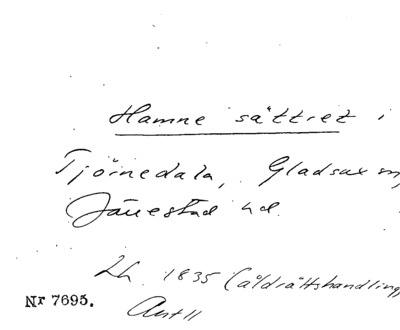 Hamne sättret i
Tjörnedala, Gladsax sn,
Järrestad hd.
Lh. 1835 (åldrättshandling,
Nr 7695.
Ant 11